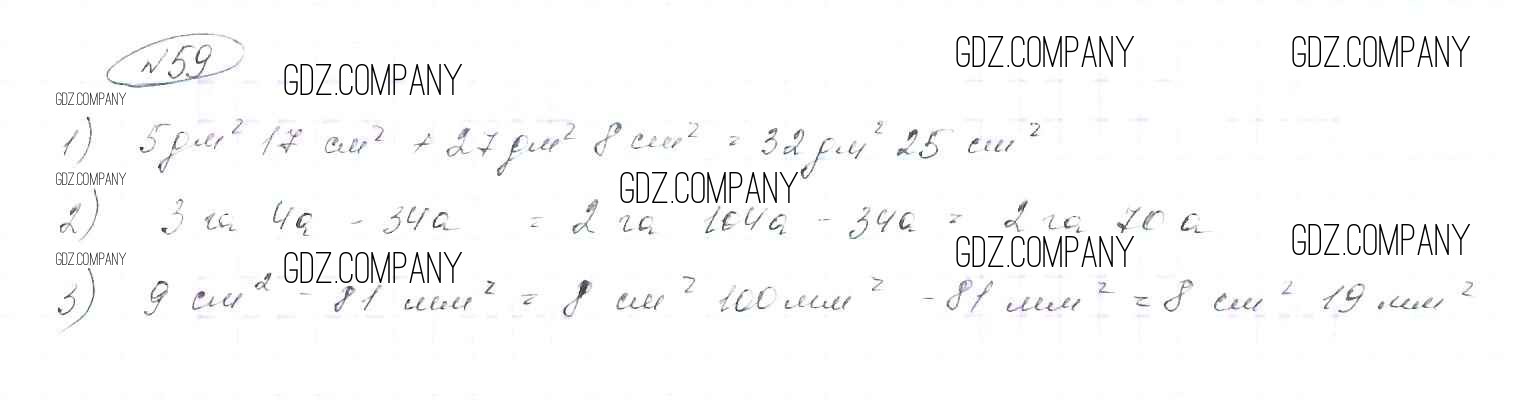 №59
GDZ.COMPANY GDZ.COMPANY GDZ.COMPANY
GDZ.COMPANY
1) 5 дм² 17 см² + 27 дм² 8 см² = 32 дм² 25 см²
GDZ.COMPANY GDZ.COMPANY
2) 3 га 4а - 34а = 2 га 104а - 34а = 2 га 70 а
GDZ.COMPANY GDZ.COMPANY GDZ.COMPANY GDZ.COMPANY
3) 9 см² - 81 мм² = 8 см² 100 мм² - 81 мм² = 8 см² 19 мм²